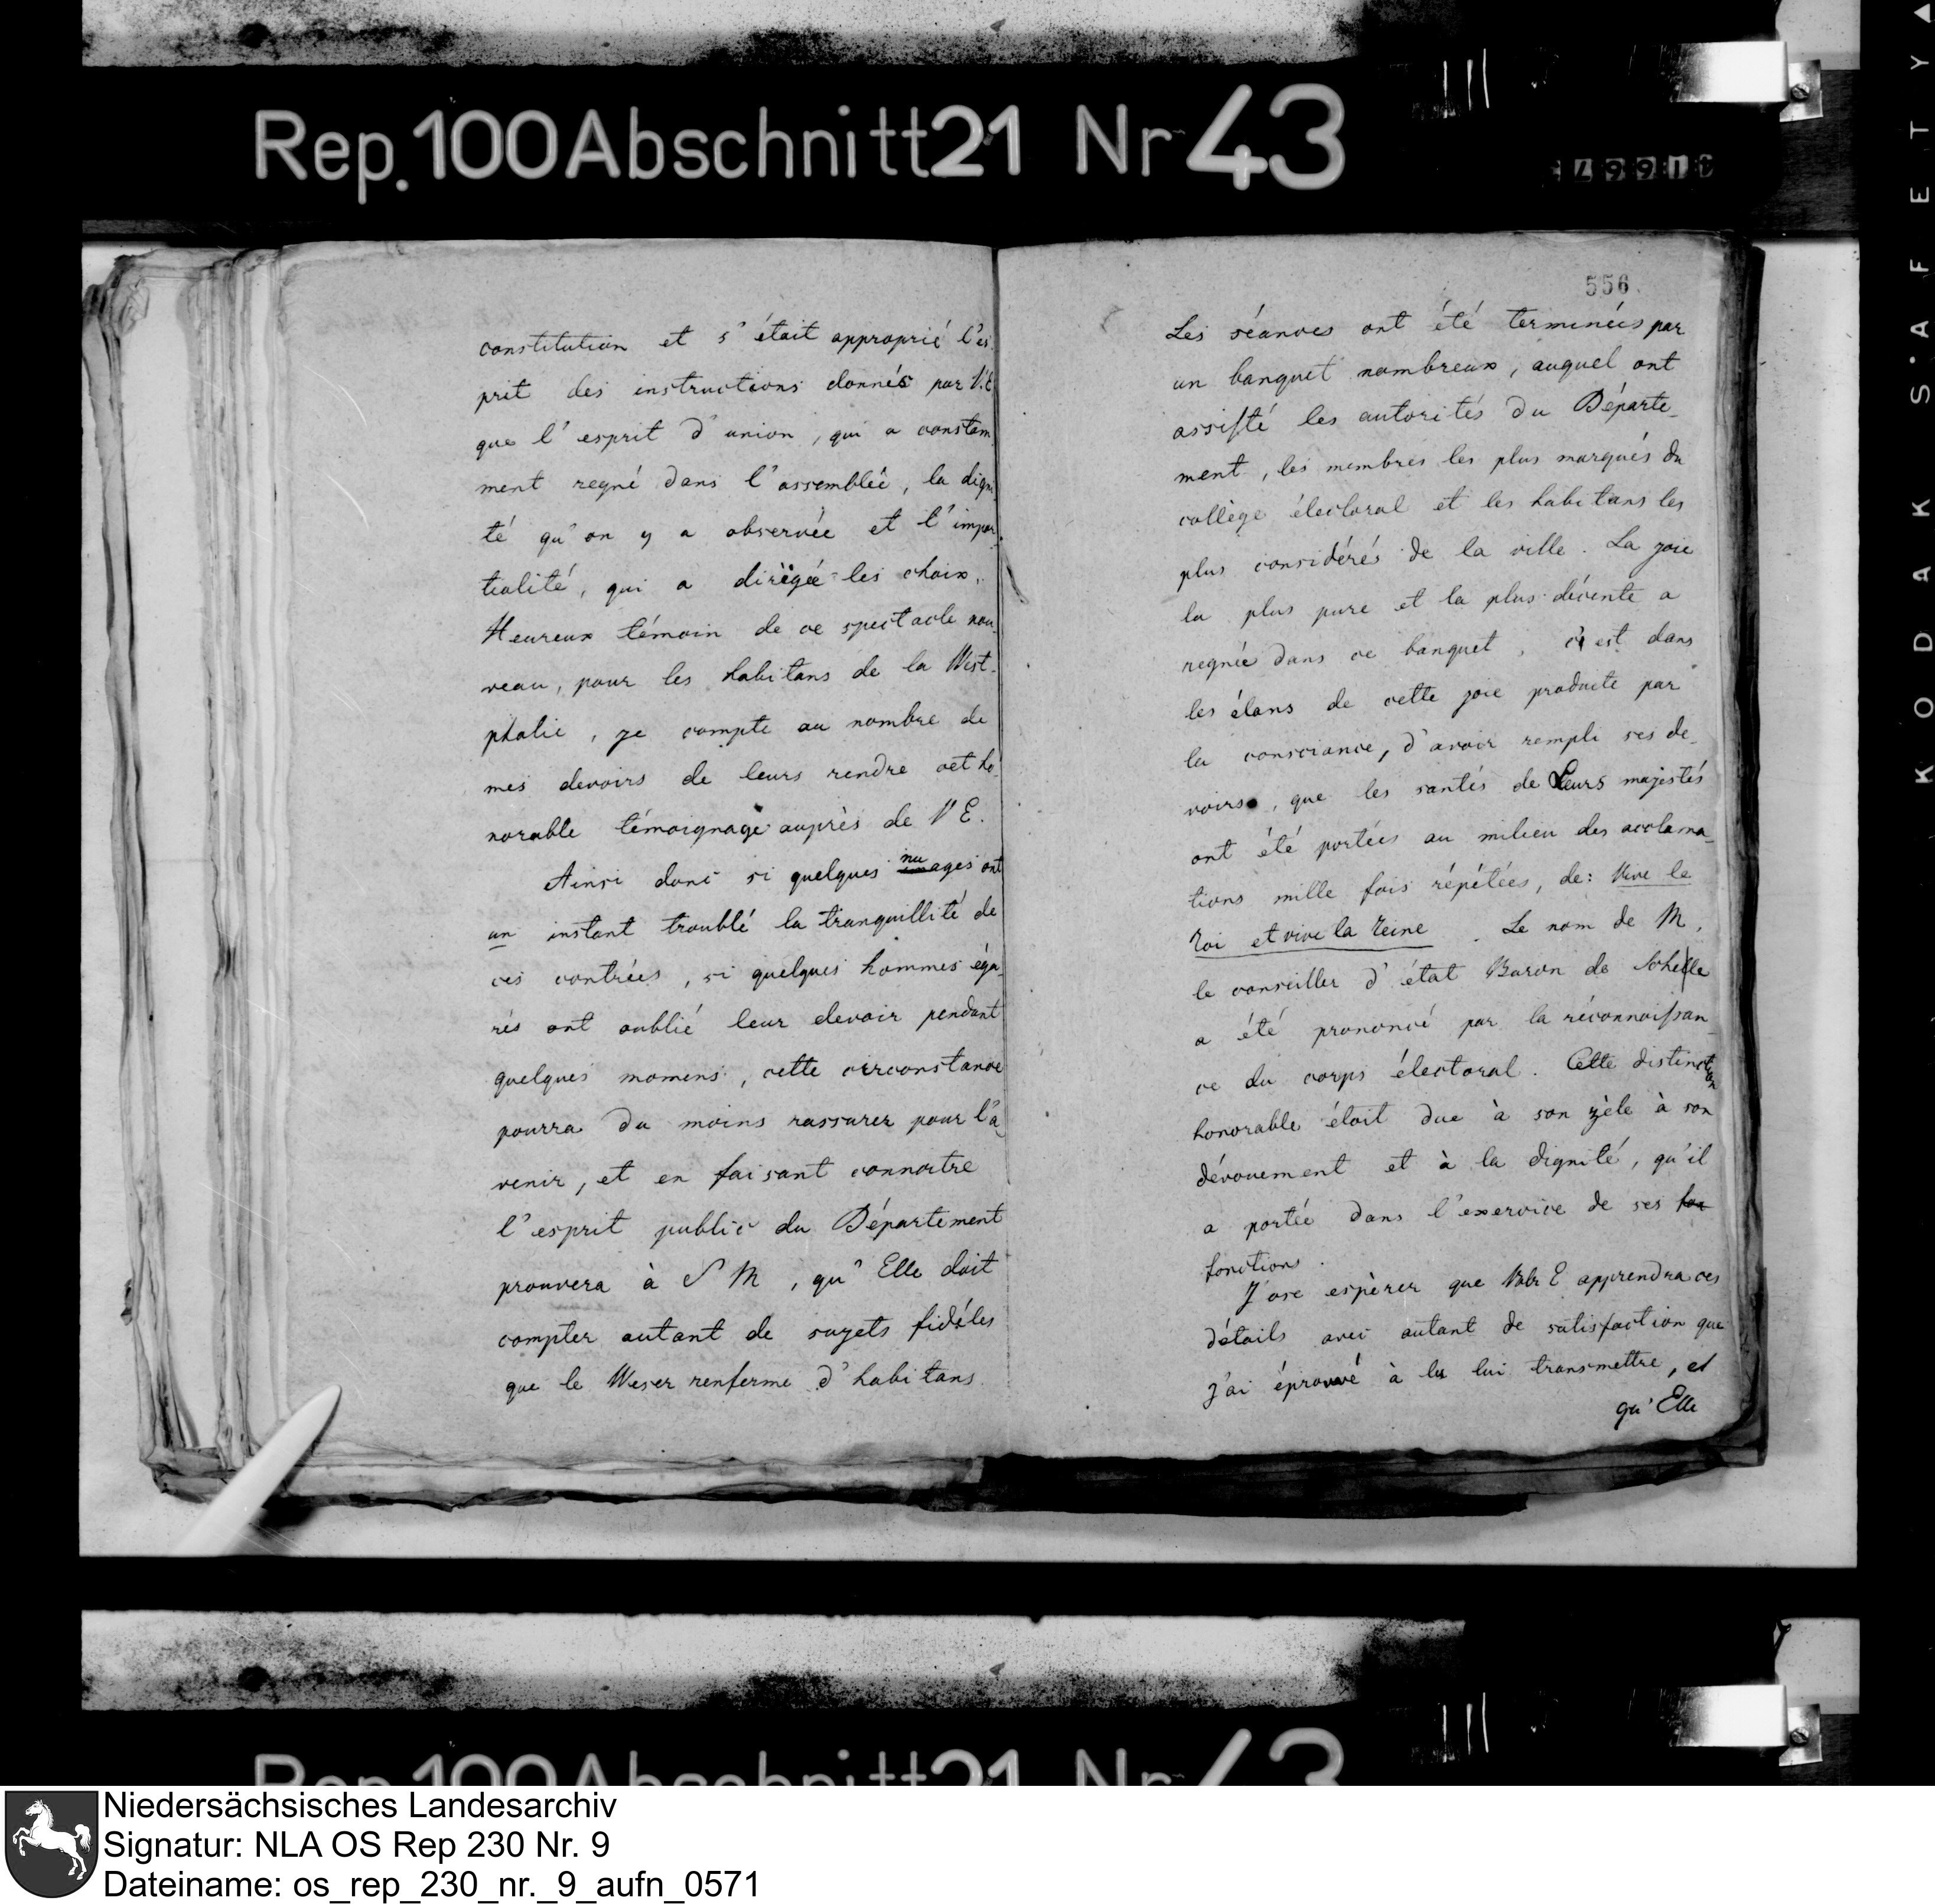 Rep. 100 Abschnitt 21 Nr 43
constitution et s'était approprié l'es
prit des instructions donnés par V.E
que l'esprit d'union, qui a constam
ment regné dans l'assemblée, la digni
té qu'on y a observée et l'impar
tialité, qui a dirigée les choix.
Heureux témoin de ce spectacle nou
veau, pour les habitans de la West-
phalie, je compte au nombre de
mes devoirs de leurs rendre cet ho
norable témoignage auprès de V E.
Ainsi donc si quelques nuages ont
un instant troublé la tranquillité de
ces contrées, si quelques hommes éga
rés ont oublié leur devoir pendant
quelques momens, cette circonstance
pourra du moins rassurer pour l'a
venir, et en faisant connoitre
l'esprit public du Département
prouvera à S M, qu'Elle doit
compter autant de sujets fidéles
que le Weser renferme d'habitans
556.
Les séances ont été terminées par
un banquet nombreux, auquel ont
assisté les autorités du Départe-
ment, les membres les plus marqués du
collège électoral et les habitans les
plus considérés de la ville. La joie
la plus pure et la plus décente a
regnée dans ce banquet, c'est dans
les élans de cette joie produite par
la consciance, d'avoir rempli ses de-
voirs, que les santés de Leurs majestés
ont été portées au milieu des acclama-
tions mille fois répétées, de: Vive le
roi et vive la reine. Le nom de M.
le conseiller d'état Baron de Schelle
a été prononcé par la réconnoissan-
ce du corps électoral. Cette distinction
honorable étoit due à son zèle à son
dévouement et à la dignité, qu'il
a portée dans l'exercice de ses
fonctions.
J'ose espèrer que Votr E apprendra ces
détails avec autant de satisfaction que
j'ai éprouvé à la lui transmettre, et
qu'Elle
KODAK S'AFETY
Niedersächsisches Landesarchiv
Signatur: NLA OS Rep 230 Nr. 9
Dateiname: os_rep_230_nr._9_aufn_0571